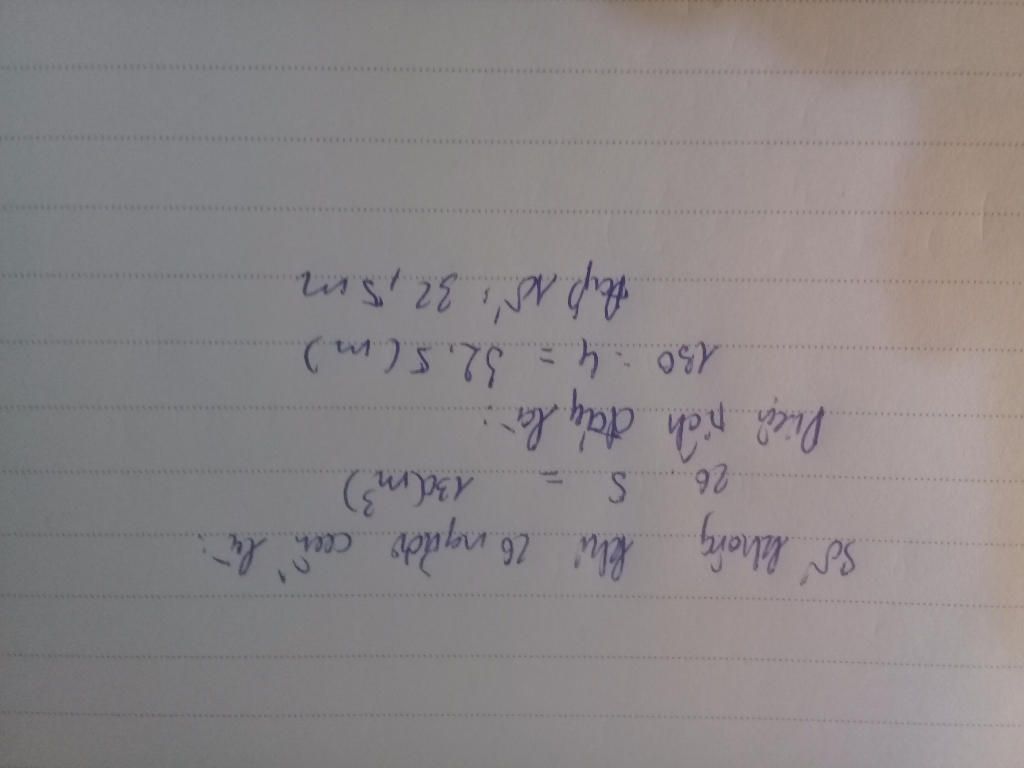 Số không khí 26 người cần là:
26 . 5 = 130(m³)
Diện tích đáy là:
130 : 4 = 32.5 (m)
Đáp số: 32,5 m